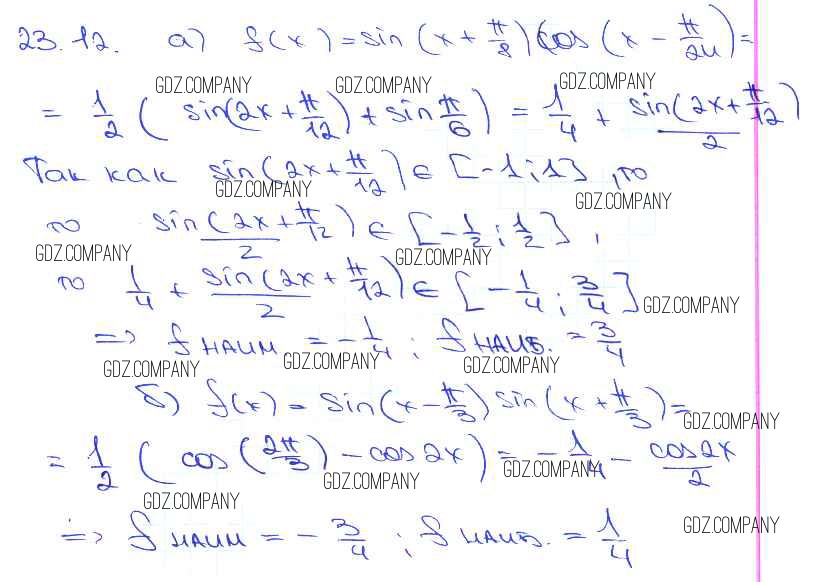 23.12. а) f(x) = sin(x + π/8) cos(x - π/24) =
GDZ.COMPANY GDZ.COMPANY GDZ.COMPANY
= 1/2 (sin(2x + π/12) + sin π/6) = 1/4 + sin(2x + π/12)/2
Так как sin(2x + π/12) ∈ [-1; 1], то
GDZ.COMPANY GDZ.COMPANY
то sin(2x + π/12)/2 ∈ [-1/2; 1/2],
GDZ.COMPANY GDZ.COMPANY
то 1/4 + sin(2x + π/12)/2 ∈ [-1/4; 3/4]
GDZ.COMPANY
=> f наим = -1/4; f наиб. = 3/4
GDZ.COMPANY GDZ.COMPANY GDZ.COMPANY
б) f(x) = sin(x - π/3) sin(x + π/3) =
GDZ.COMPANY
= 1/2 (cos(2π/3) - cos 2x) = -1/4 - cos2x/2
GDZ.COMPANY GDZ.COMPANY
GDZ.COMPANY
=> f наим = -3/4; f наиб. = 1/4
GDZ.COMPANY